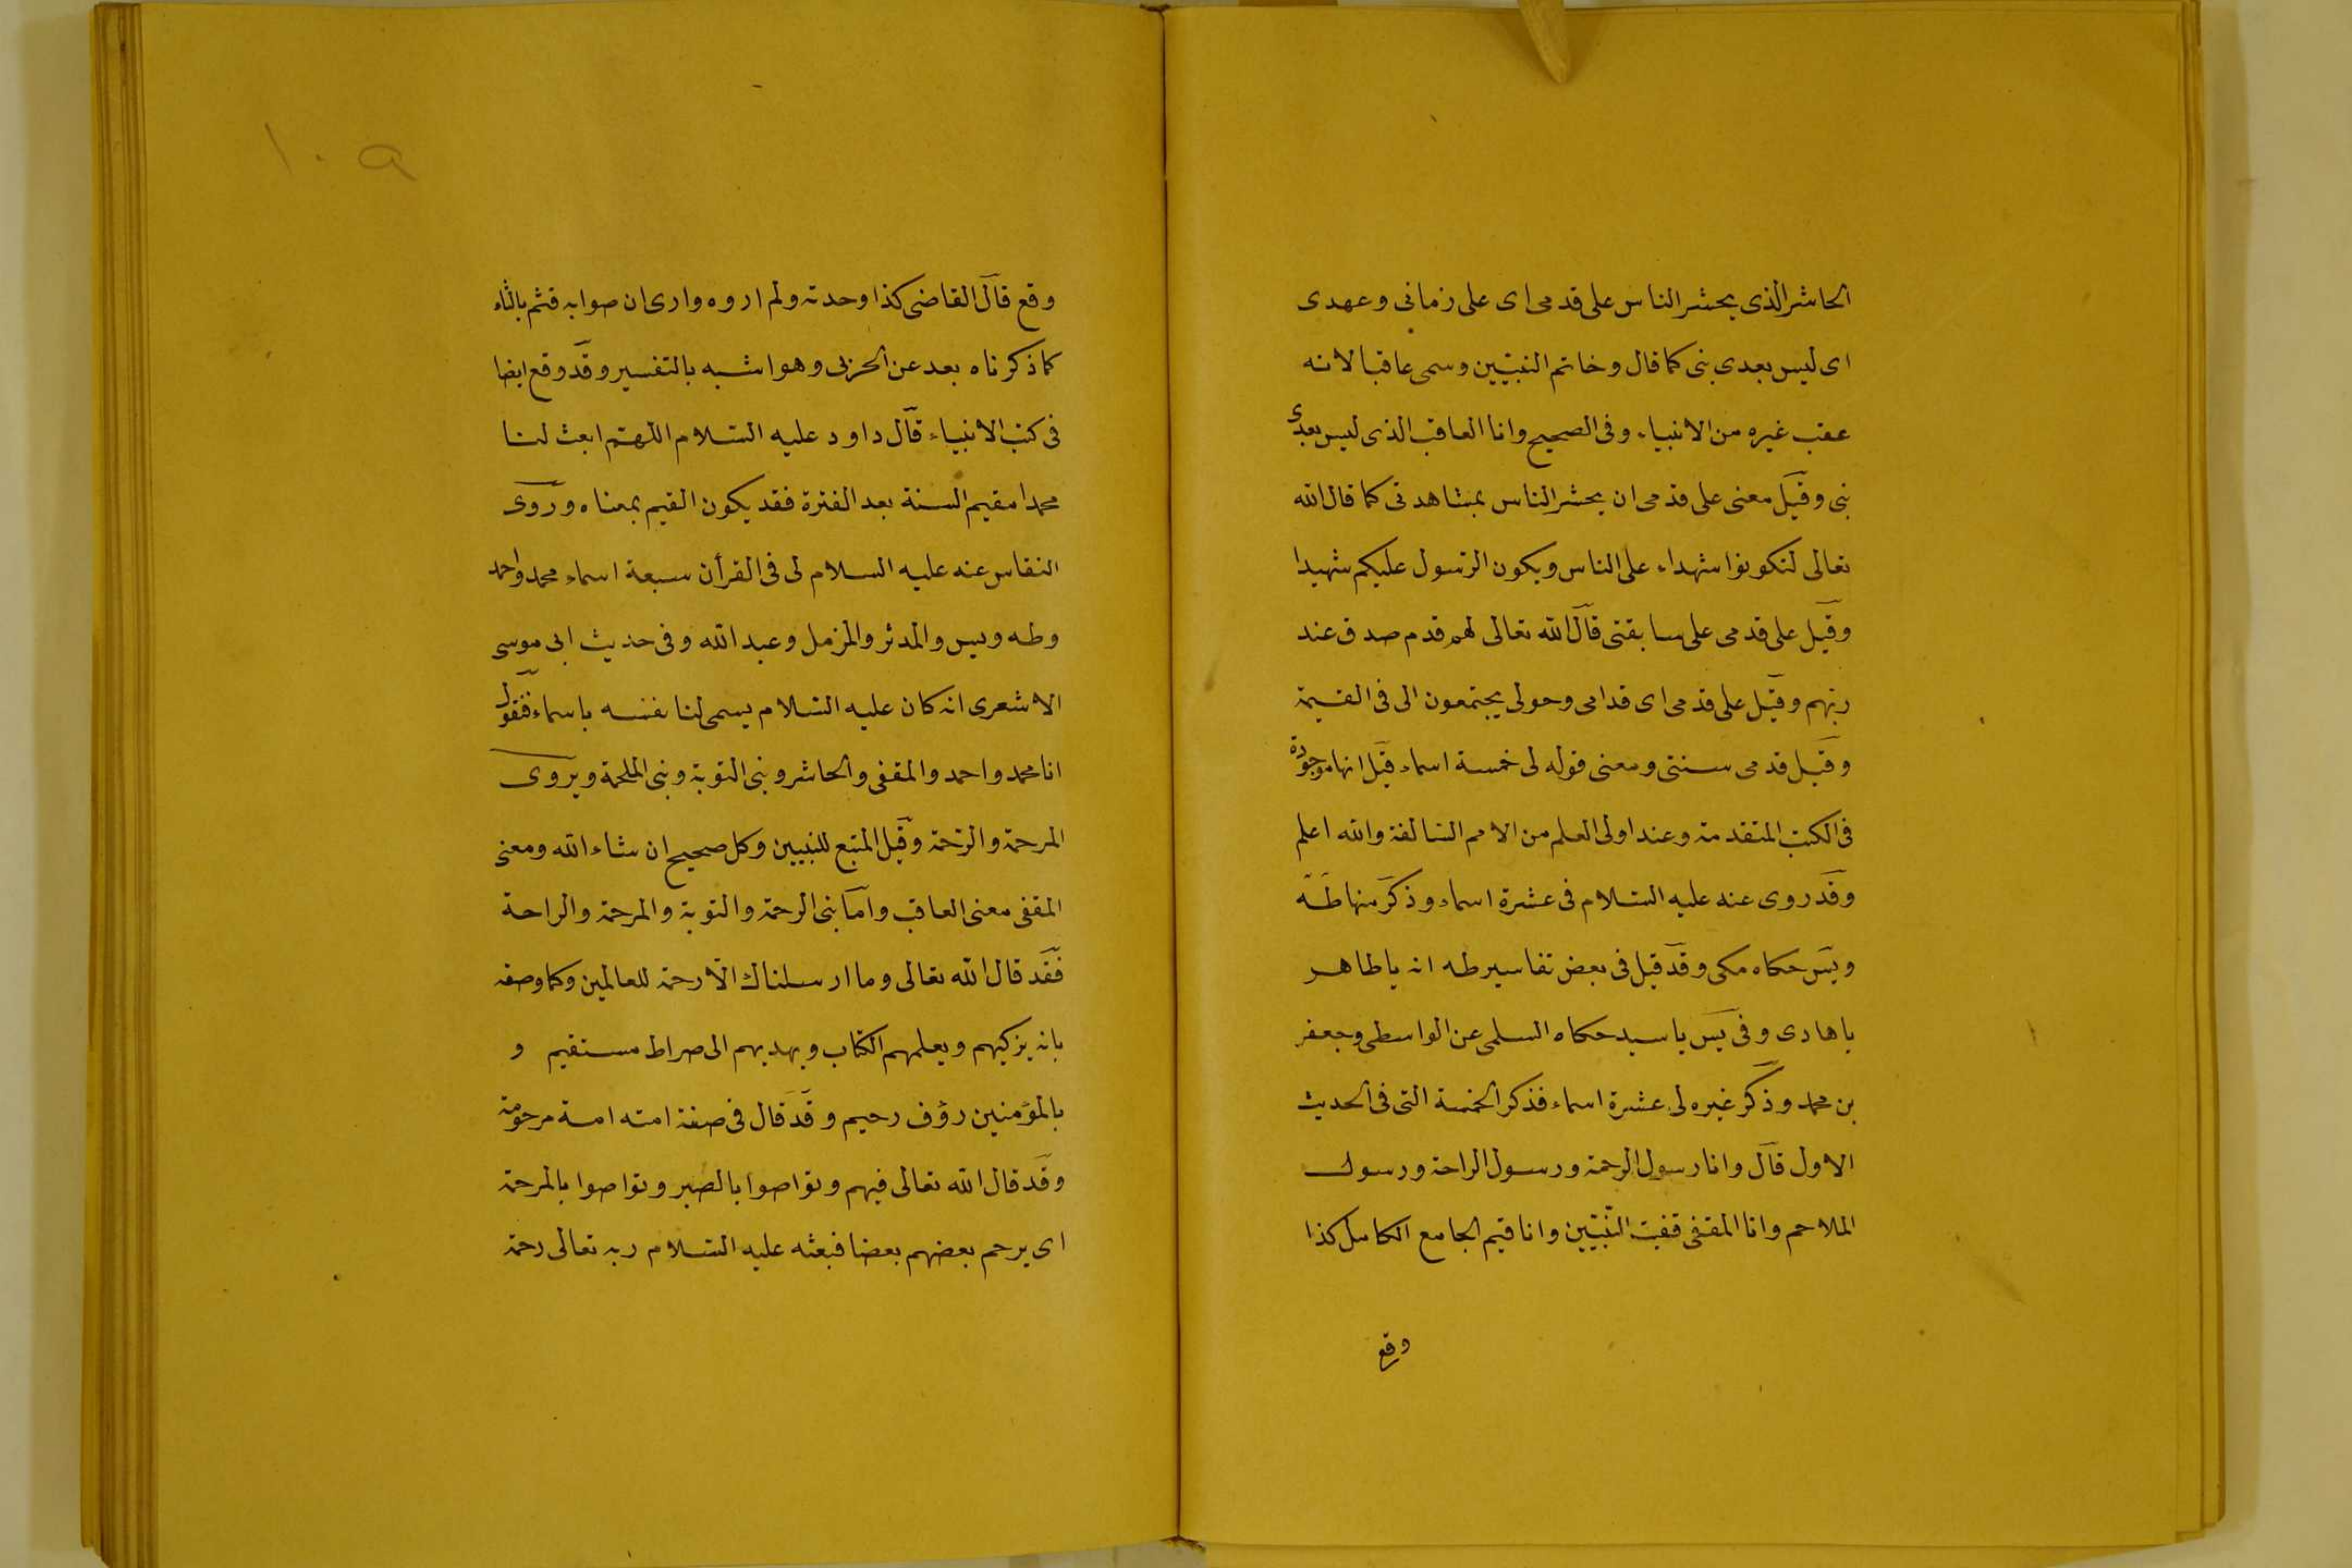 الحاشر الذى يحشر الناس على قدمى اى على زمانى وعهدى
اى ليس بعدى نبى كما قال وخاتم النبيّين وسمى عاقبا لانه
عقب غيره من الانبياء وفى الصحيح وانا العاقب الذى ليس بعدى
نبى وقيل معنى على قدمى ان يحشر الناس بمشاهدتى كما قال الله
تعالى لتكونوا شهداء على الناس ويكون الرسول عليكم شهيدا
وقيل على قدمى على سابقتى قال الله تعالى لهم قدم صدق عند
ربهم وقيل على قدمى اى قدامى وحولى يجتمعون الى فى القيمة
وقيل قدمى سنتى ومعنى قوله لى خمسة اسماء قيل انها موجودة
فى الكتب المتقدمة وعند اولى العلم من الامم السّالفة والله اعلم
وقد روى عنه عليه السّلام فى عشرة اسماء وذكر منها طه
ويس حكاه مكى وقد قيل فى بعض تفاسير طه انه يا طاهر
يا هادى وفى يس يا سيد حكاه السلمى عن الواسطى وجعفر
بن محمد وذكر غيره لى عشرة اسماء فذكر الخمسة التى فى الحديث
الاول قال وانا رسول الرحمة ورسول الراحة ورسول
الملاحم وانا المقفى قفيت النّبيّين وانا قيم الجامع الكامل كذا
وقع
١٠٩
وقع قال القاضى كذا وحدته ولم اروه وارى ان صوابه قثم بالثاء
كما ذكرناه بعد عن الحزبى وهو اشبه بالتفسير وقد وقع ايضا
فى كتب الانبياء قال داود عليه السّلام اللهمّ ابعث لنا
محمدا مقيم السنة بعد الفترة فقد يكون القيم بمعناه وروى
النقاس عنه عليه السلام لى فى القرأن سبعة اسماء محمد واحمد
وطه ويس والمدثر والمزمل وعبد الله وفى حديث ابى موسى
الاشعرى انه كان عليه السّلام يسمى لنا نفسه باسماء فقول
انا محمد واحمد والمقفى والحاشر ونبى التوبة ونبى الملحمة ويروى
المرحمة والرّحمة وقيل المتبع للنبيين وكل صحيح ان شاء الله ومعنى
المقفى معنى العاقب واما نبى الرحمة والتوبة والمرحمة والراحة
فقد قال الله تعالى وما ارسلناك الّا رحمة للعالمين وكما وصفه
بانه يزكيهم ويعلمهم الكتاب ويهديهم الى صراط مستقيم و
بالمؤمنين رؤف رحيم وقد قال فى صفة امته امة مرحومة
وقد قال الله تعالى فيهم وتواصوا بالصبر وتواصوا بالمرحمة
اى يرحم بعضهم بعضا فبعثه عليه السّلام ربه تعالى رحمة